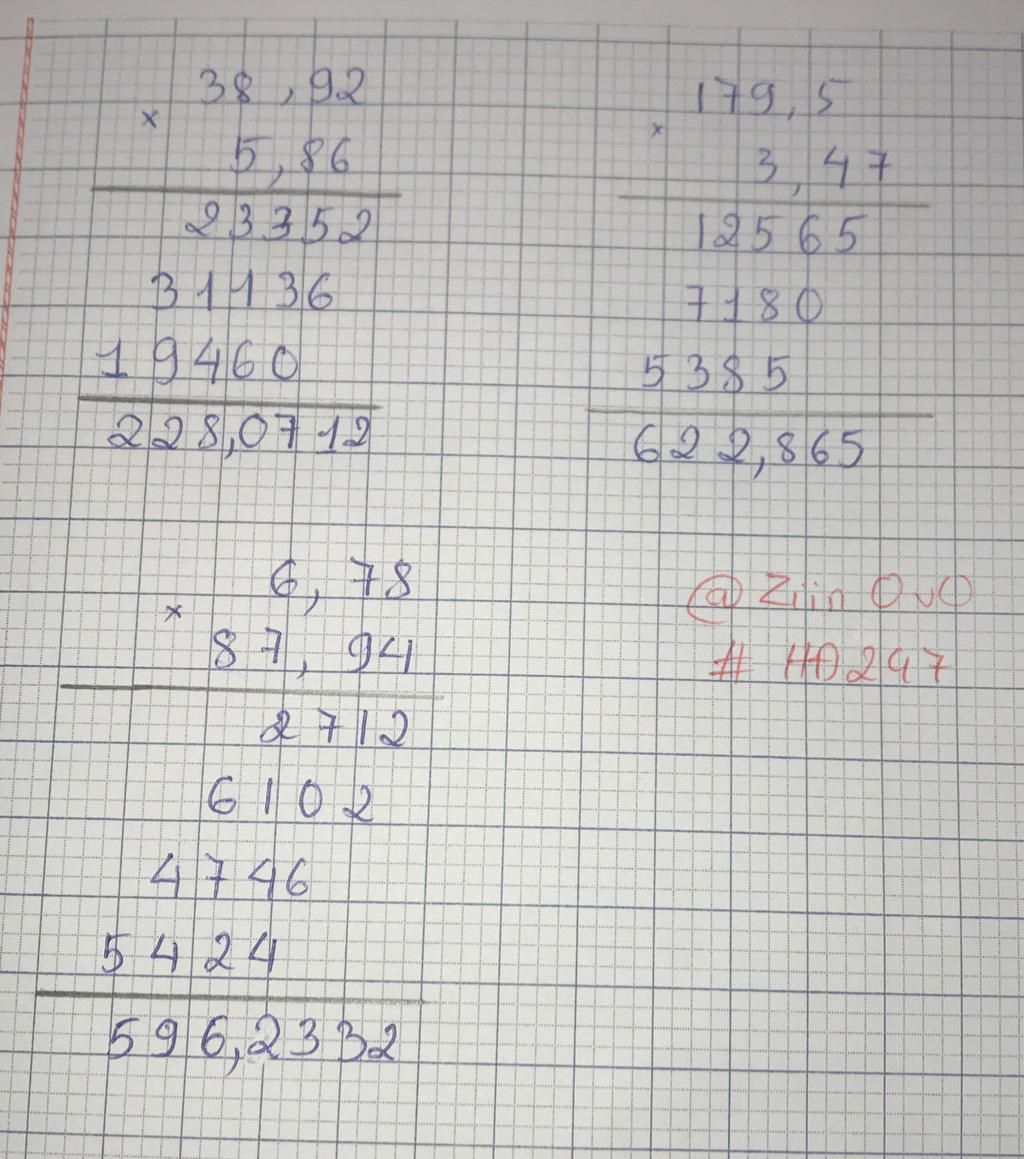 38,92
×
5,86
23352
31136
19460
228,0712
179,5
×
3,47
12565
7180
5385
622,865
6,78
×
87,94
2712
6102
4746
5424
596,2332
@ Ziin OvO
# HD247